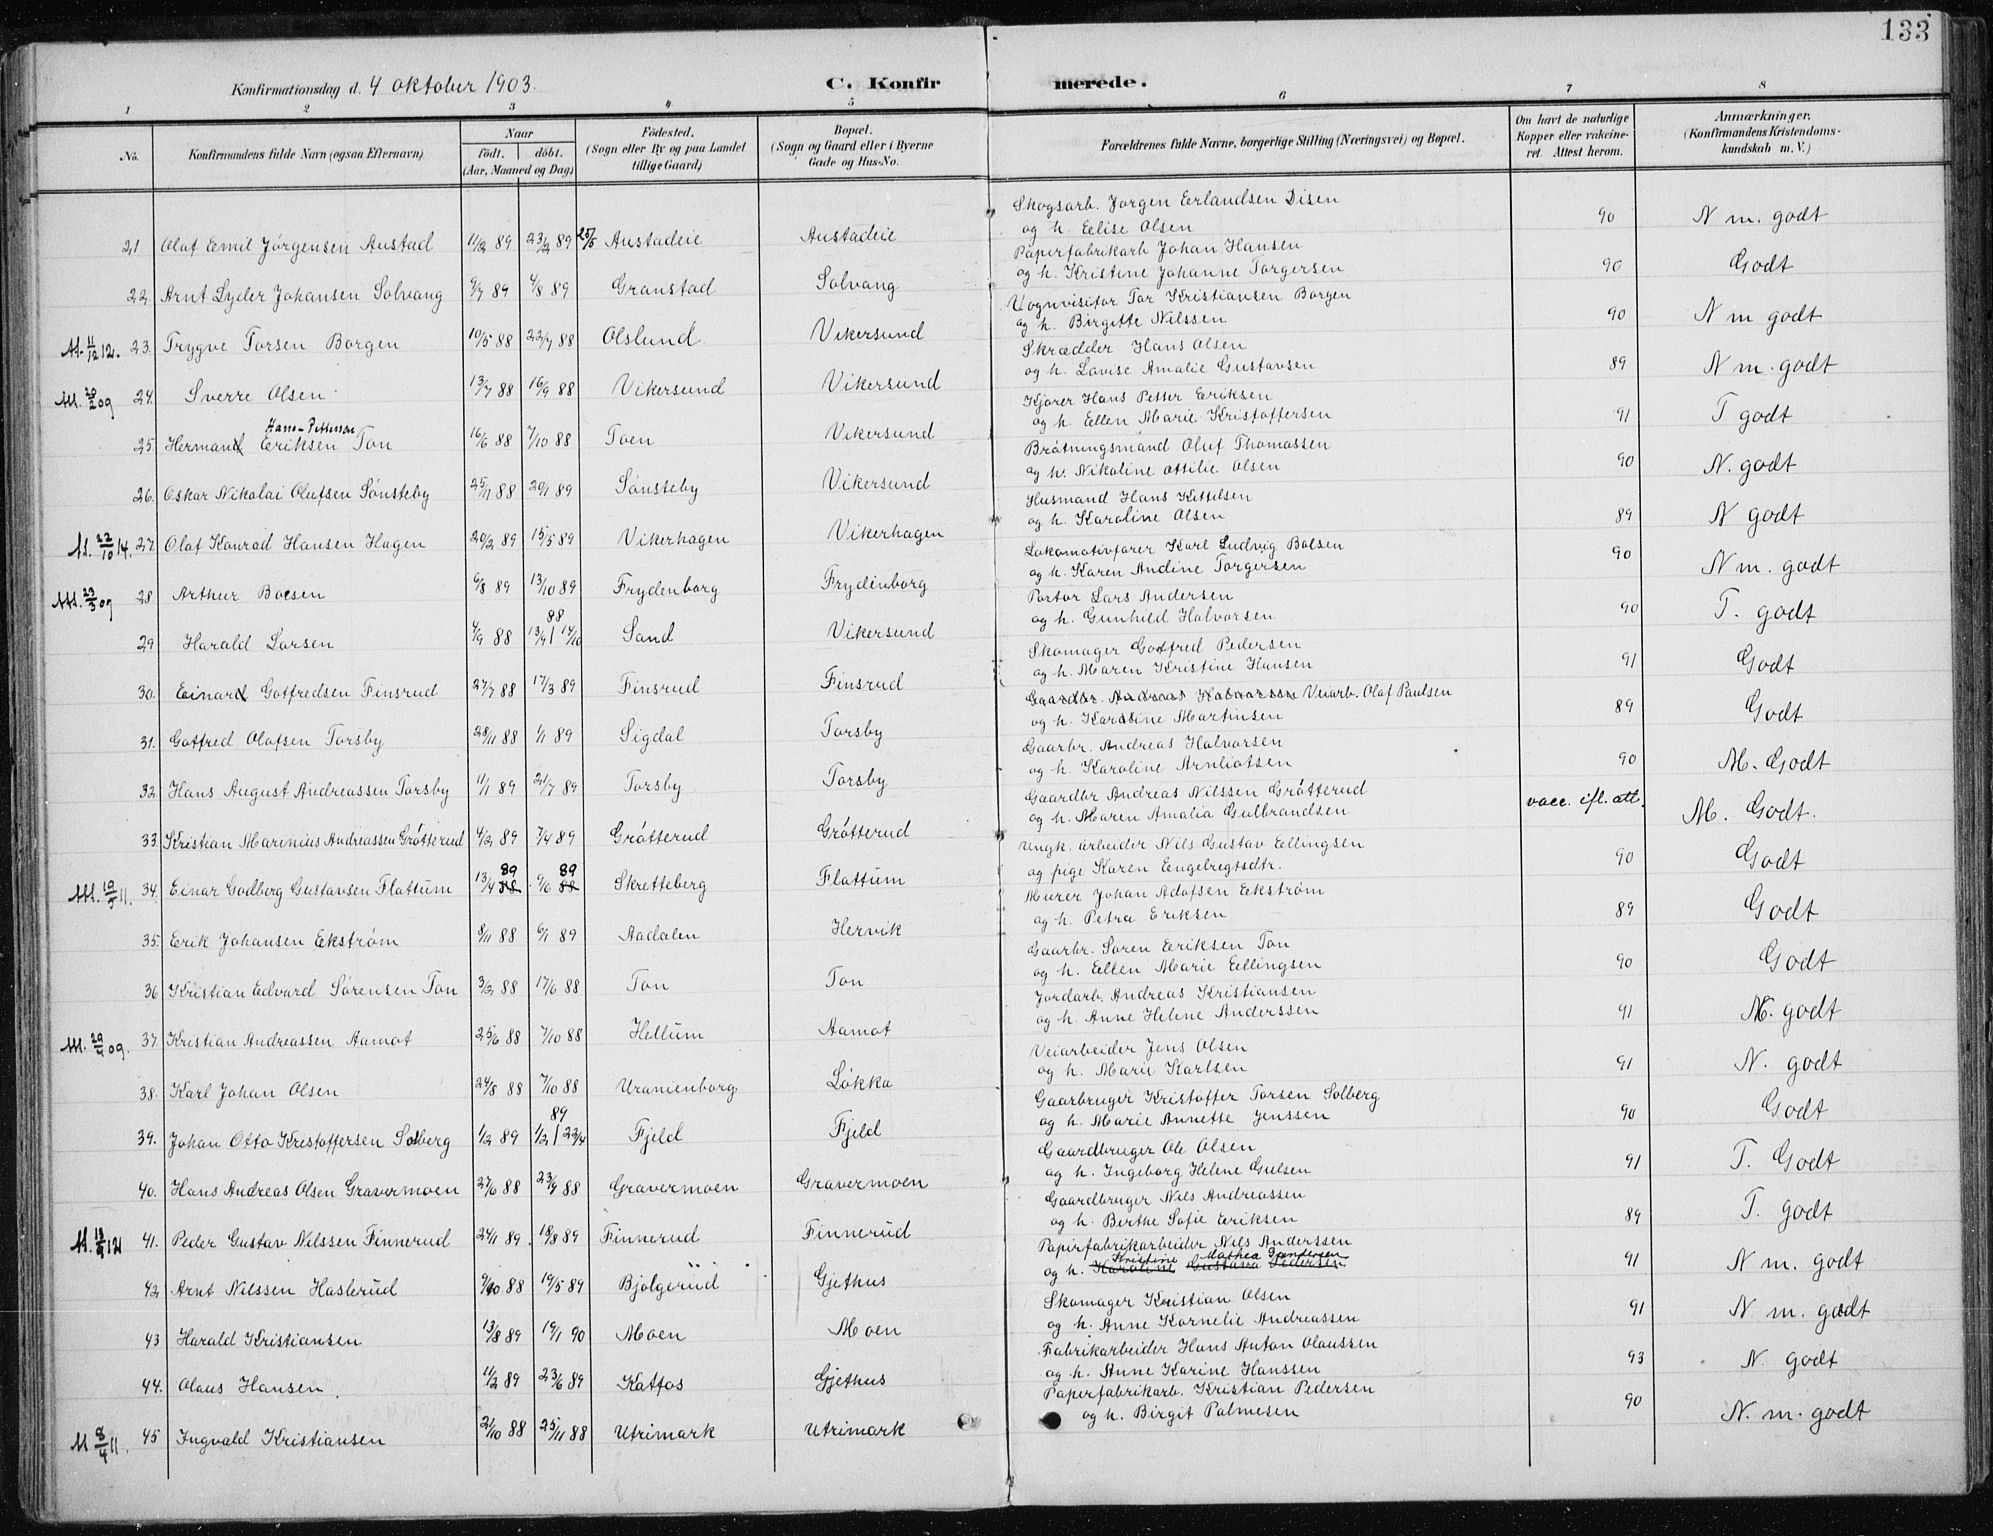 133
Konfirmationsdag d. 4 oktober 1903.
C. Konfirmerede.
1 2 3 4 5 6 7 8
No.
Konfirmandens fulde Navn (ogsaa Efternavn)
Naar
Födt. döbt.
(Aar, Maaned og Dag)
Födested.
(Sogn eller By og paa Landet
tillige Gaard)
Bopæl.
(Sogn og Gaard eller i Byerne
Gade og Hus-No.
Forældrenes fulde Navne, borgerlige Stilling (Næringsvei) og Bopæl.
Om havt de naturlige
Kopper eller vakcine-
ret. Attest herom.
Anmærkninger.
(Konfirmandens Kristendoms-
kundskab m. V.)
21 Olaf Emil Jörgensen Austad 11/2 89 23/2 89 25/5 Austadeie Austadeie Skogsarb. Jorgen Eerlandsen Disen 90 N m. godt
og h. Eelise Olsen
22. Arnt Lyder Johansen Solvang 9/7 89 4/8 89 Granstad Solvang Papirfabrikarb Johan Hansen 90 Godt
og h. Kristine Johanne Torgersen
At. 11/12 12. 23. Trygve Torsen Borgen 10/5 88 22/7 88 Olslund Vikersund Vognvisitor Tor Kristiansen Borgen 90 N m godt
og h. Birgitte Nilssen
Att. 20/2 09 24. Sverre Olsen 13/7 88 16/9 88 Vikersund Vikersund Skrædder Hans Olsen 89 N m. godt
og h. Lovise Amalie Gustavsen
Hans-Pettersen
25. Hermand Eriksen Ton 16/6 88 7/10 88 Toen Vikersund Kjörer Hans Petter Eriksen 91 T godt
og h. Ellen Marie Kristoffersen
26. Oskar Nikolai Olufsen Sönsteby 25/11 88 20/1 89 Sönsteby Vikersund Bråtningsmand Oluf Thomassen 90 N. godt
og h. Nikoline Ottilie Olsen
At. 22/10 14. 27. Olaf Konrad Hansen Hagen 20/2 89 15/5 89 Vikerhagen Vikerhagen Husmand Hans Kittilsen 89 N godt
og h. Karoline Olsen
Att. 23/3 09 28 Arthur Boesen 6/8 89 13/10 89 Frydenborg Frydenborg Lokomotivförer Karl Ludvig Boesen 90 N m. godt
og h. Karen Andine Torgersen
29 Harald Larsen 4/9 88 88 13/9 | 14/10 Sand Vikersund Portor Lars Andersen 90 T. godt
og h. Gunhild Halvorsen
30. Einard Gotfredsen Finsrud 27/7 88 17/3 89 Finsrud Finsrud Skomager Gotfred Pedersen 91 Godt
og h. Maren Kristine Hansen
31. Gotfred Olafsen Torsby 28/11 88 1/1 89 Sigdal Torsby Gaardbr. Andreas Halvorsen Veiarb. Olaf Paulsen 89 Godt
og h. Karoline Martinsen
32. Hans August Andreassen Torsby 11/1 89 21/7 89 Torsby Torsby Gaarbr. Andreas Halvorsen 90 M. Godt
og h. Karoline Arnliotsen
33. Kristian Marinius Andreassen Gröttcrud 4/2 89 7/4 89 Grötterud Grötterud Gaardbr Andreas Nilssen Grötterud vacc. ifl. att. M. Godt.
og h. Maren Amalia Gulbrandsen
Att. 19/5 11. 34. Einar Godberg Gustavsen Flattum 13/4 89 88 9/6 89 88 Skretteberg Flattum Ungk. arbeider Nils Gustav Eellingsen 90 Godt
og pige Karen Eengebregtsdtr.
35. Erik Johansen Ekström 8/11 88 6/1 89 Aadalen Hervik Murer Johan Adofsen Eekström 89 Godt
og h. Petra Eriksen
36 Kristian Edvard Sörensen Ton 3/2 88 17/6 88 Ton Ton Gaarbr. Sören Eeriksen Ton 90 Godt
og h. Eellen Marie Eellingsen
Att. 29/4 09. 37. Kristian Andreassen Aamot 25/6 88 7/10 88 Hellum Aamot Jordarb. Andreas Kristiansen 91 M. godt
og h. Anne Helene Anderssen
38. Karl Johan Olsen 24/8 88 7/10 88 Uranienborg Lökka Veiarbeider Jens Olsen 91 N. godt
og h. Marie Karlsen
39. Johan Otto Kristoffersen Solberg 1/2 89 89 1/2 | 22/4 Fjeld Fjeld Gaarbruger Kristoffer Torsen Solberg 90 Godt
og h. Marie Annette Jenssen
40. Hans Andreas Olsen Gravermoen 27/6 88 23/9 88 Gravermoen Gravermoen Gaardbruger Ole Olsen 91 T. Godt
og h. Ingeborg Helene Gulsen
41. Peder Gustav Nilssen Finnerud 24/1 89 18/8 89 Finnerud Finnerud Gaardbruger Nils Andreassen 89 T. godt
og h. Berthe Sofie Eeriksen
42 Arnt Nilssen Haslerud 9/10 88 19/5 89 Bjölgerud Gjethus Papirfabrikarbeider Nils Anderssen 91 N m. godt
Kristine Mathea Gundersen
og h. Karoline Gustava Pedersen
43 Harald Kristiansen 13/8 89 19/1 90 Moen Moen Skomager Kristian Olsen 91 N. m. godt
og h. Anne Kornelie Andreassen
44. Olaus Hansen. 11/2 89 23/6 89 Kattos Gjethus Fabrikarbeider Hans Anton Olaussen 93 N. godt
og h. Anne Karine Hanssen
At 8/4 11. 45 Ingvald Kristiansen 21/10 88 25/11 88 Utrimark Utrimark Papirfabrikarb. Kristian Pedersen 90 N. m. godt
og h. Birgit Palmesen